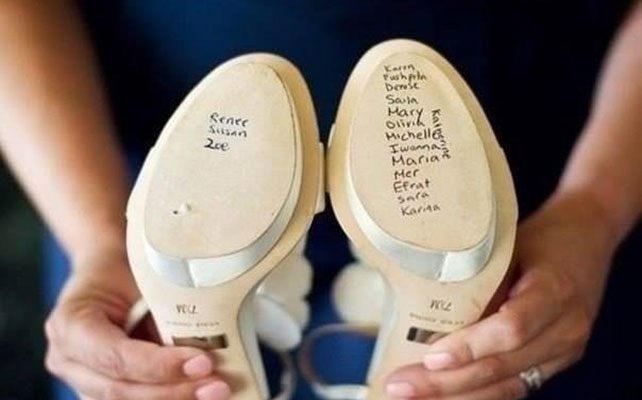 Renee
Susan
Zoe
Karen
Pushpita
Denise
Saila
Mary
Olivia
Michelle
Iwanna
Maria
Mer
Efrat
Sara
Karina
Katherine
7½M
7½M